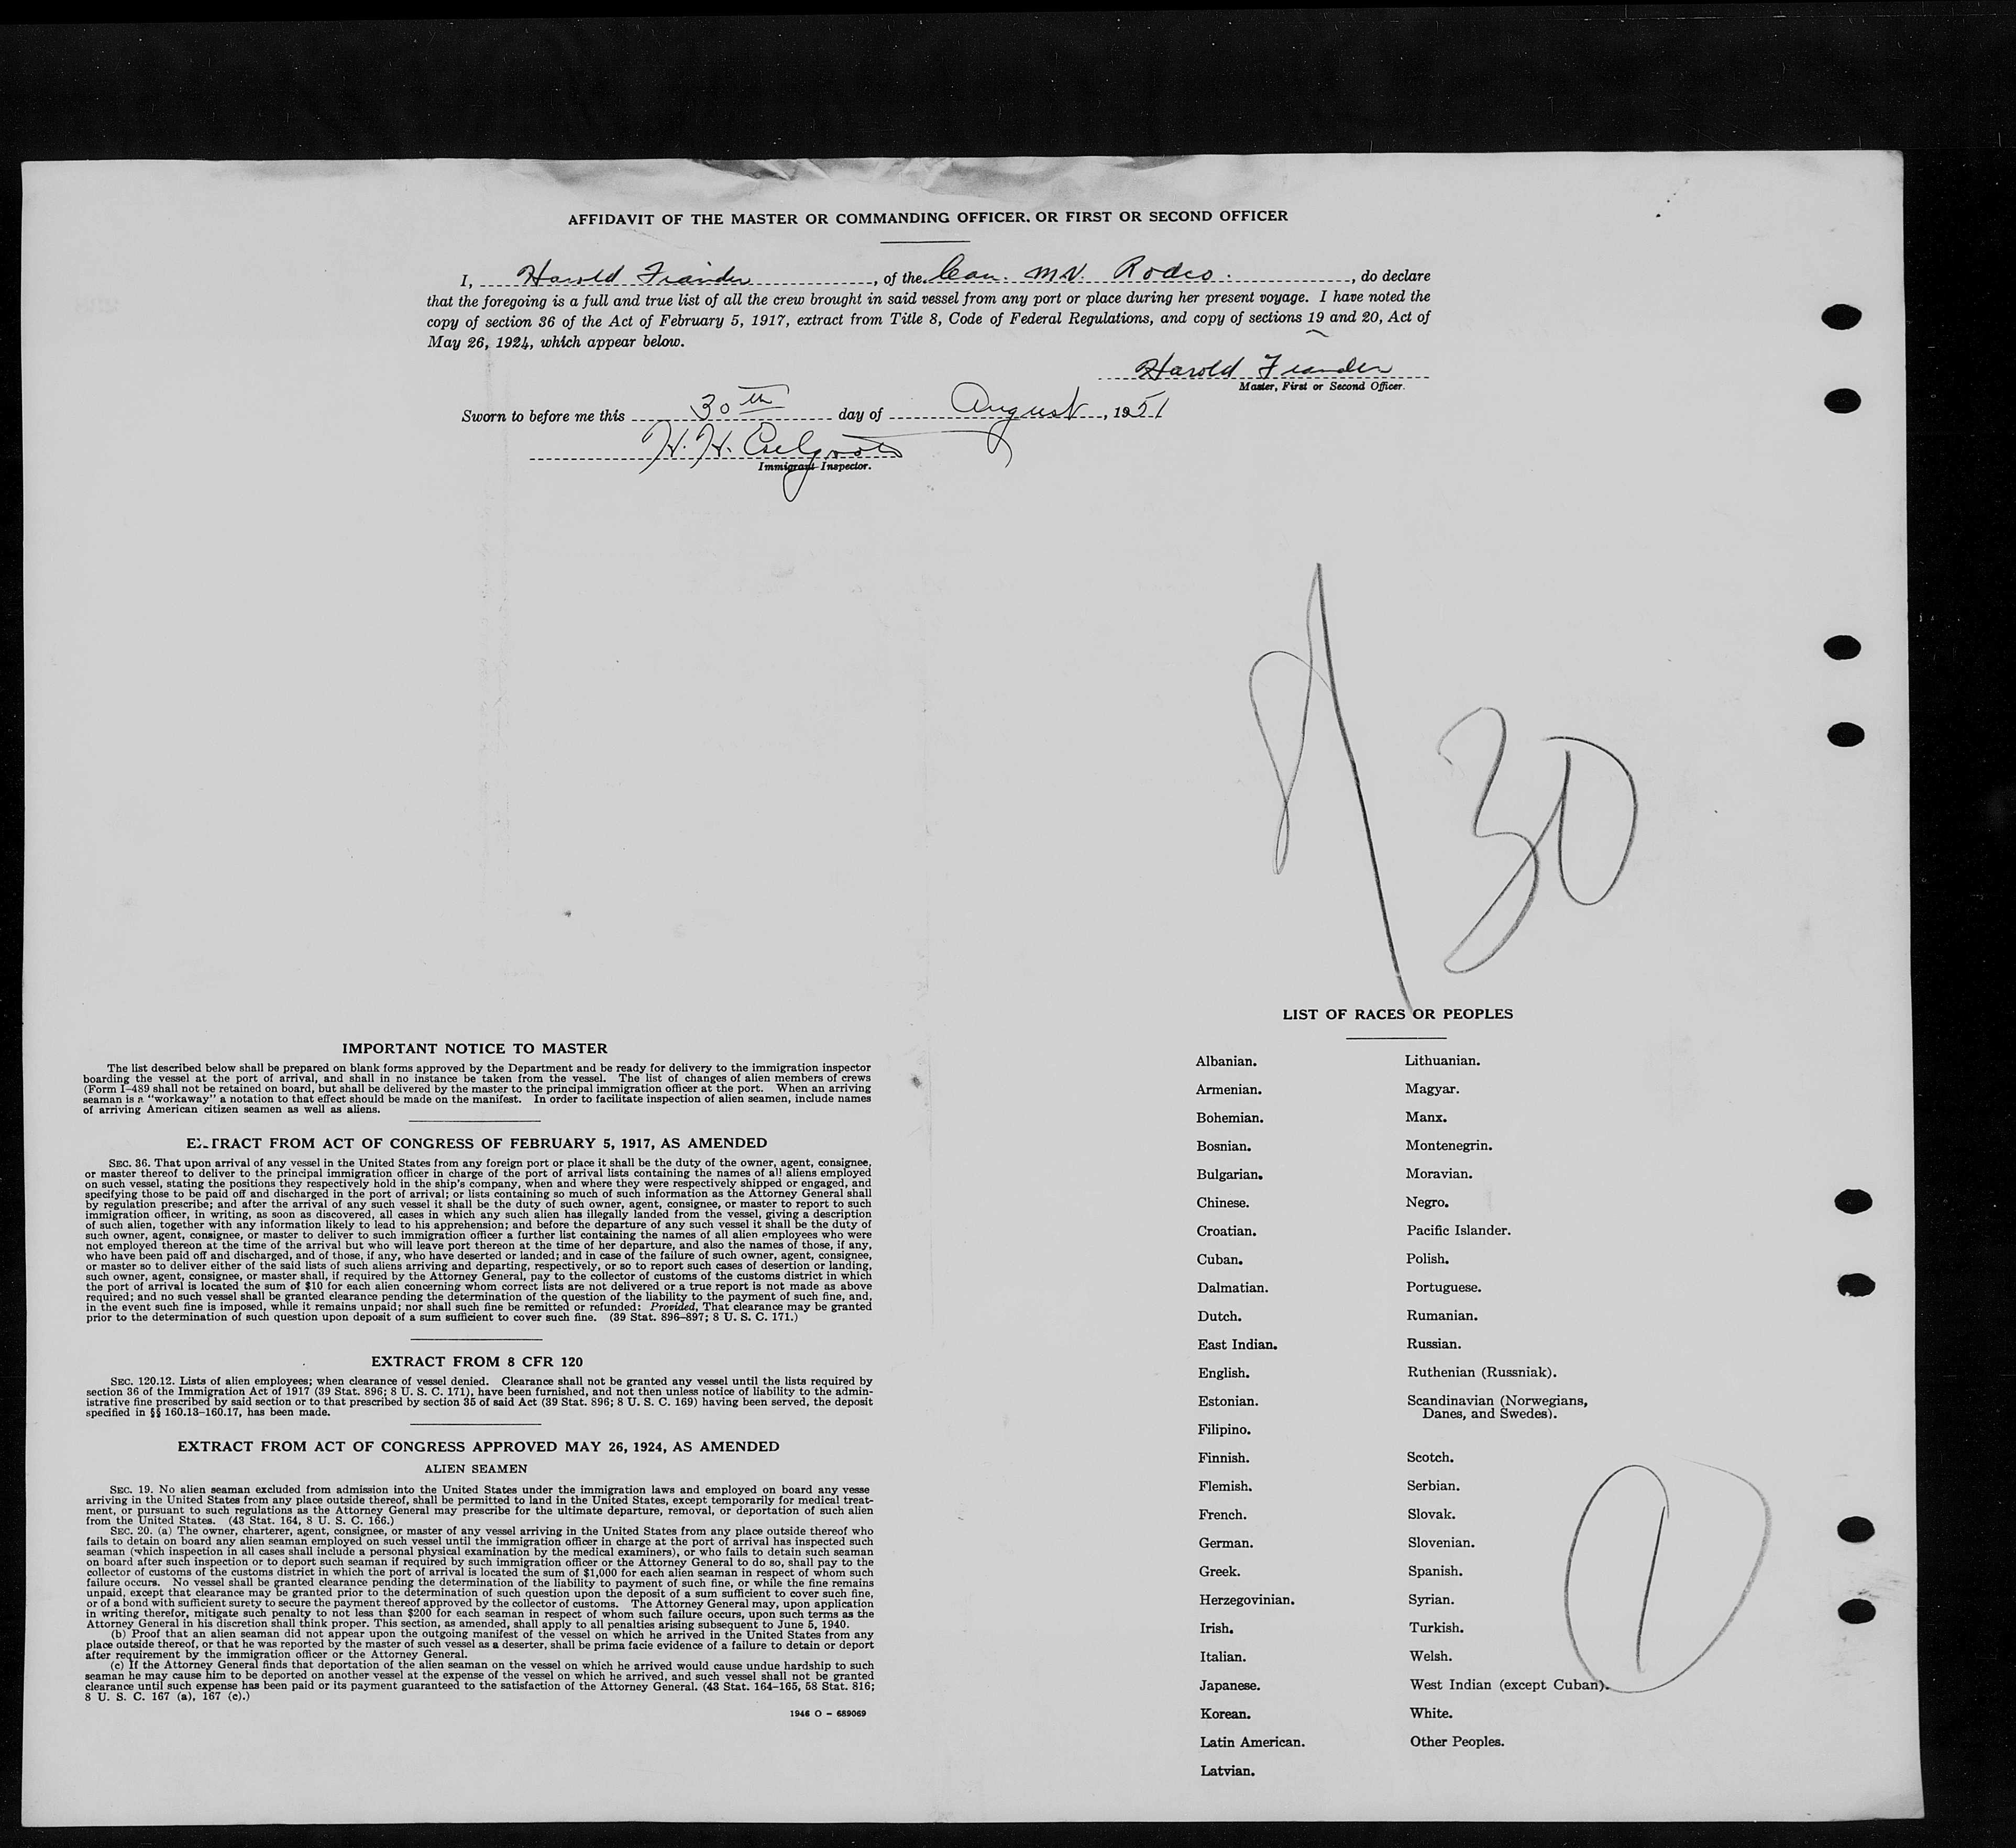 AFFIDAVIT OF THE MASTER OR COMMANDING OFFICER, OR FIRST OR SECOND OFFICER
I, Harold , of the Can. M.V. Rodeo. , do declare
that the foregoing is a full and true list of all the crew brought in said vessel from any port or place during her present voyage. I have noted the
copy of section 36 of the Act of February 5, 1917, extract from Title 8, Code of Federal Regulations, and copy of sections 19 and 20, Act of
May 26, 1924, which appear below.
Harold
Master, First or Second Officer.
Sworn to before me this 30th day of August, 1951
H. H.
Immigrant Inspector.
30
IMPORTANT NOTICE TO MASTER
The list described below shall be prepared on blank forms approved by the Department and be ready for delivery to the immigration inspector
boarding the vessel at the port of arrival, and shall in no instance be taken from the vessel. The list of changes of alien members of crews
(Form I-489 shall not be retained on board, but shall be delivered by the master to the principal immigration officer at the port. When an arriving
seaman is a "workaway" a notation to that effect should be made on the manifest. In order to facilitate inspection of alien seamen, include names
of arriving American citizen seamen as well as aliens.
EXTRACT FROM ACT OF CONGRESS OF FEBRUARY 5, 1917, AS AMENDED
SEC. 36. That upon arrival of any vessel in the United States from any foreign port or place it shall be the duty of the owner, agent, consignee,
or master thereof to deliver to the principal immigration officer in charge of the port of arrival lists containing the names of all aliens employed
on such vessel, stating the positions they respectively hold in the ship's company, when and where they were respectively shipped or engaged, and
specifying those to be paid off and discharged in the port of arrival; or lists containing so much of such information as the Attorney General shall
by regulation prescribe; and after the arrival of any such vessel it shall be the duty of such owner, agent, consignee, or master to report to such
immigration officer, in writing, as soon as discovered, all cases in which any such alien has illegally landed from the vessel, giving a description
of such alien, together with any information likely to lead to his apprehension; and before the departure of any such vessel it shall be the duty of
such owner, agent, consignee, or master to deliver to such immigration officer a further list containing the names of all alien employees who were
not employed thereon at the time of the arrival but who will leave port thereon at the time of her departure, and also the names of those, if any,
who have been paid off and discharged, and of those, if any, who have deserted or landed; and in case of the failure of such owner, agent, consignee,
or master so to deliver either of the said lists of such aliens arriving and departing, respectively, or so to report such cases of desertion or landing,
such owner, agent, consignee, or master shall, if required by the Attorney General, pay to the collector of customs of the customs district in which
the port of arrival is located the sum of $10 for each alien concerning whom correct lists are not delivered or a true report is not made as above
required; and no such vessel shall be granted clearance pending the determination of the question of the liability to the payment of such fine, and,
in the event such fine is imposed, while it remains unpaid; nor shall such fine be remitted or refunded: Provided, That clearance may be granted
prior to the determination of such question upon deposit of a sum sufficient to cover such fine. (39 Stat. 896-897; 8 U. S. C. 171.)
EXTRACT FROM 8 CFR 120
SEC. 120.12. Lists of alien employees; when clearance of vessel denied. Clearance shall not be granted any vessel until the lists required by
section 36 of the Immigration Act of 1917 (39 Stat. 896; 8 U. S. C. 171), have been furnished, and not then unless notice of liability to the admin-
istrative fine prescribed by said section or to that prescribed by section 35 of said Act (39 Stat. 896; 8 U. S. C. 169) having been served, the deposit
specified in §§ 160.13-160.17, has been made.
EXTRACT FROM ACT OF CONGRESS APPROVED MAY 26, 1924, AS AMENDED
ALIEN SEAMEN
SEC. 19. No alien seaman excluded from admission into the United States under the immigration laws and employed on board any vesse
arriving in the United States from any place outside thereof, shall be permitted to land in the United States, except temporarily for medical treat-
ment, or pursuant to such regulations as the Attorney General may prescribe for the ultimate departure, removal, or deportation of such alien
from the United States. (43 Stat. 164, 8 U. S. C. 166.)
SEC. 20. (a) The owner, charterer, agent, consignee, or master of any vessel arriving in the United States from any place outside thereof who
fails to detain on board any alien seaman employed on such vessel until the immigration officer in charge at the port of arrival has inspected such
seaman (which inspection in all cases shall include a personal physical examination by the medical examiners), or who fails to detain such seaman
on board after such inspection or to deport such seaman if required by such immigration officer or the Attorney General to do so, shall pay to the
collector of customs of the customs district in which the port of arrival is located the sum of $1,000 for each alien seaman in respect of whom such
failure occurs. No vessel shall be granted clearance pending the determination of the liability to payment of such fine, or while the fine remains
unpaid, except that clearance may be granted prior to the determination of such question upon the deposit of a sum sufficient to cover such fine,
or of a bond with sufficient surety to secure the payment thereof approved by the collector of customs. The Attorney General may, upon application
in writing therefor, mitigate such penalty to not less than $200 for each seaman in respect of whom such failure occurs, upon such terms as the
Attorney General in his discretion shall think proper. This section, as amended, shall apply to all penalties arising subsequent to June 5, 1940.
(b) Proof that an alien seaman did not appear upon the outgoing manifest of the vessel on which he arrived in the United States from any
place outside thereof, or that he was reported by the master of such vessel as a deserter, shall be prima facie evidence of a failure to detain or deport
after requirement by the immigration officer or the Attorney General.
(c) If the Attorney General finds that deportation of the alien seaman on the vessel on which he arrived would cause undue hardship to such
seaman he may cause him to be deported on another vessel at the expense of the vessel on which he arrived, and such vessel shall not be granted
clearance until such expense has been paid or its payment guaranteed to the satisfaction of the Attorney General. (43 Stat. 164-165, 58 Stat. 816;
8 U. S. C. 167 (a), 167 (c).)
1946 O - 689069
LIST OF RACES OR PEOPLES
Albanian.
Armenian.
Bohemian.
Bosnian.
Bulgarian.
Chinese.
Croatian.
Cuban.
Dalmatian.
Dutch.
East Indian.
English.
Estonian.
Filipino.
Finnish.
Flemish.
French.
German.
Greek.
Herzegovinian.
Irish.
Italian.
Japanese.
Korean.
Latin American.
Latvian.
Lithuanian.
Magyar.
Manx.
Montenegrin.
Moravian.
Negro.
Pacific Islander.
Polish.
Portuguese.
Rumanian.
Russian.
Ruthenian (Russniak).
Scandinavian (Norwegians,
Danes, and Swedes).
Scotch.
Serbian.
Slovak.
Slovenian.
Spanish.
Syrian.
Turkish.
Welsh.
West Indian (except Cuban).
White.
Other Peoples.
1